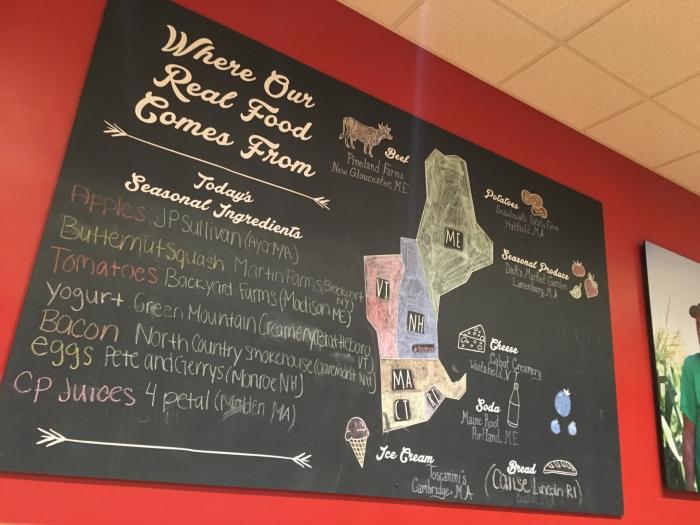 Where Our
Real Food
Comes From
Today's
Seasonal Ingredients
Apples JP Sullivan (Ayer MA)
Butternut Squash Martin Farms (Brockport NY)
Tomatoes Backyard Farms (Madison ME)
yogurt Green Mountain Creamery (Brattleboro VT)
Bacon North Country Smokehouse (Claremont NH)
eggs Pete and Gerrys (Monroe NH)
CP Juices 4 petal (Malden MA)
Beef
Pineland Farms
New Gloucester, ME
ME
VT
NH
MA
CT
RI
Potatoes
Potato Farm
Hatfield, MA
Seasonal Produce
Dick's Market Garden
Lunenburg, MA
Cheese
Cabot Creamery
VT
Soda
Maine Root
Portland, ME
Ice Cream
Toscanini's
Cambridge, MA
Bread
Lincoln RI